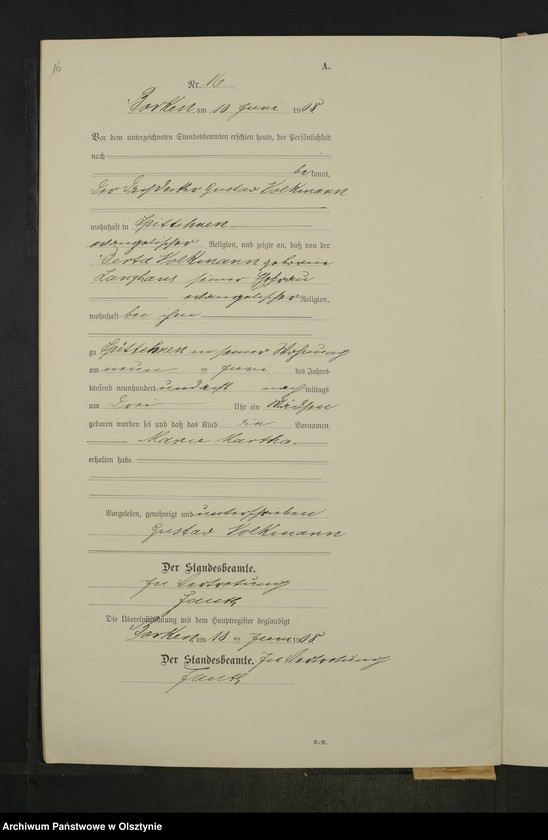 16
A.
Nr. 16
Borken, am 10 Juni 1908
Vor dem unterzeichneten Standesbeamten erschien heute, der Persönlichkeit
nach
bekannt,
der Gustav Volkmann
wohnhaft in Spittehnen
evangelischer Religion, und zeigte an, daß von der
Berta Volkmann geborene
Langhans seiner Ehefrau
evangelischer Religion,
wohnhaft bei ihm
zu Spittehnen in seiner Wohnung
am neun ten Juni des Jahres
tausend neunhundert und acht nachmittags
um drei Uhr ein Mädchen
geboren worden sei und daß das Kind die Vornamen
Marie Martha
erhalten habe.
Vorgelesen, genehmigt und unterschrieben
Gustav Volkmann
Der Standesbeamte.
In Vertretung
Die Übereinstimmung mit dem Hauptregister beglaubigt
Borken, am 10 ten Juni 1908
Der Standesbeamte. In Vertretung
A.-R.
Archiwum Państwowe w Olsztynie